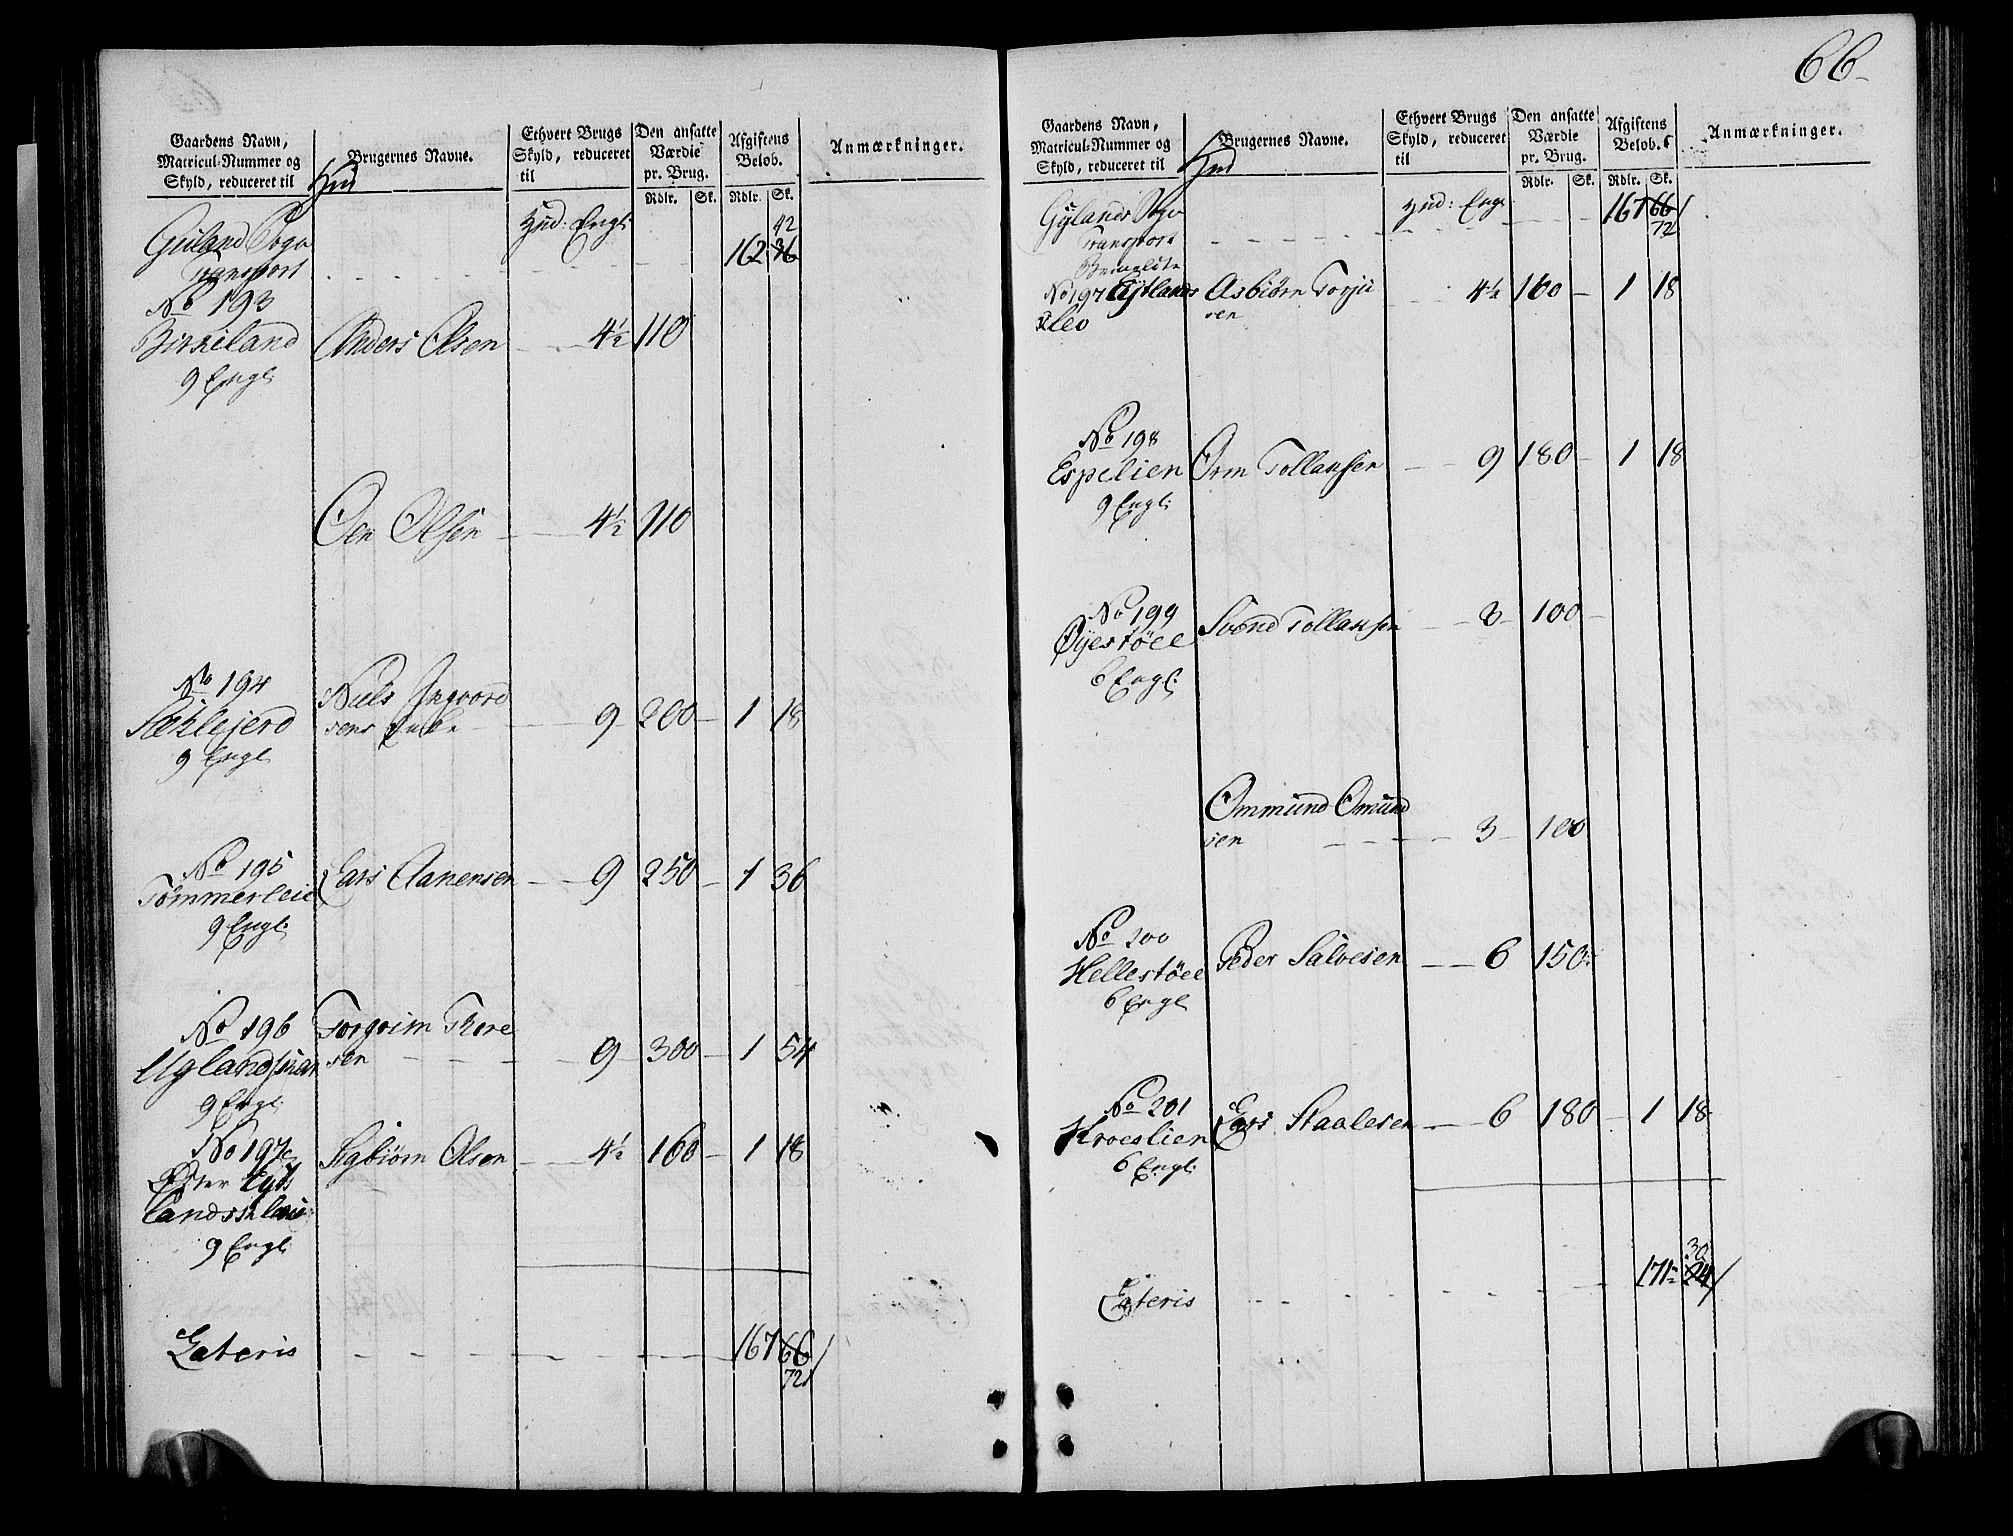 Gaardens Navn, Matricul-Nummer og Skyld, reduceret til Hud
Brugernes Navne.
Ethvert Brugs Skyld, reduceret til
Den ansatte Værdie pr. Brug.
Afgiftens Beløb.
Anmærkninger.
Rdlr. Sk. Rdlr. Sk.
Hud: Engl:
42
Gyland Sogn
Transport 162 36
No 193
Birkeland Anders Olsen 4½ 110
9 Engl:
Oen Olsen 4½ 110
No 194 Niels Ingvord
sens Enke 9 200 1 18
9 Engl
No 195 Lars Aanensen 9 250 1 36
Tømmerleie
9 Engl:
No 196 Torgrim Thore
sen 9 300 1 54
9 Engl:
No 197 Sigbiørn Olsen 4½ 160 1 18
Øster
9 Engl:
Lateris 167 66
72
66
Gaardens Navn, Matricul-Nummer og Skyld, reduceret til Hud
Brugernes Navne.
Ethvert Brugs Skyld, reduceret til
Den ansatte Værdie pr. Brug.
Afgiftens Beløb.
Anmærkninger.
Rdlr. Sk. Rdlr. Sk.
Hud: Engl
Gylands Sogn 167 66
Transport 72
No 197 Asbiørn Torju 4½ 160 1 18
sen
No 198
Espelien Orm Tollaksen 9 180 1 18
9 Engl:
No 199
Øyestøel Svend Tollaksen 3 100
6 Engl:
Ommund Omund
sen 3 100
No 200
Hellestøel Peder Salvesen 6 150
6 Engl
No 201
Kroeslien Lars Staalesen 6 180 1 18
6 Engl:
30
Lateris 171 24